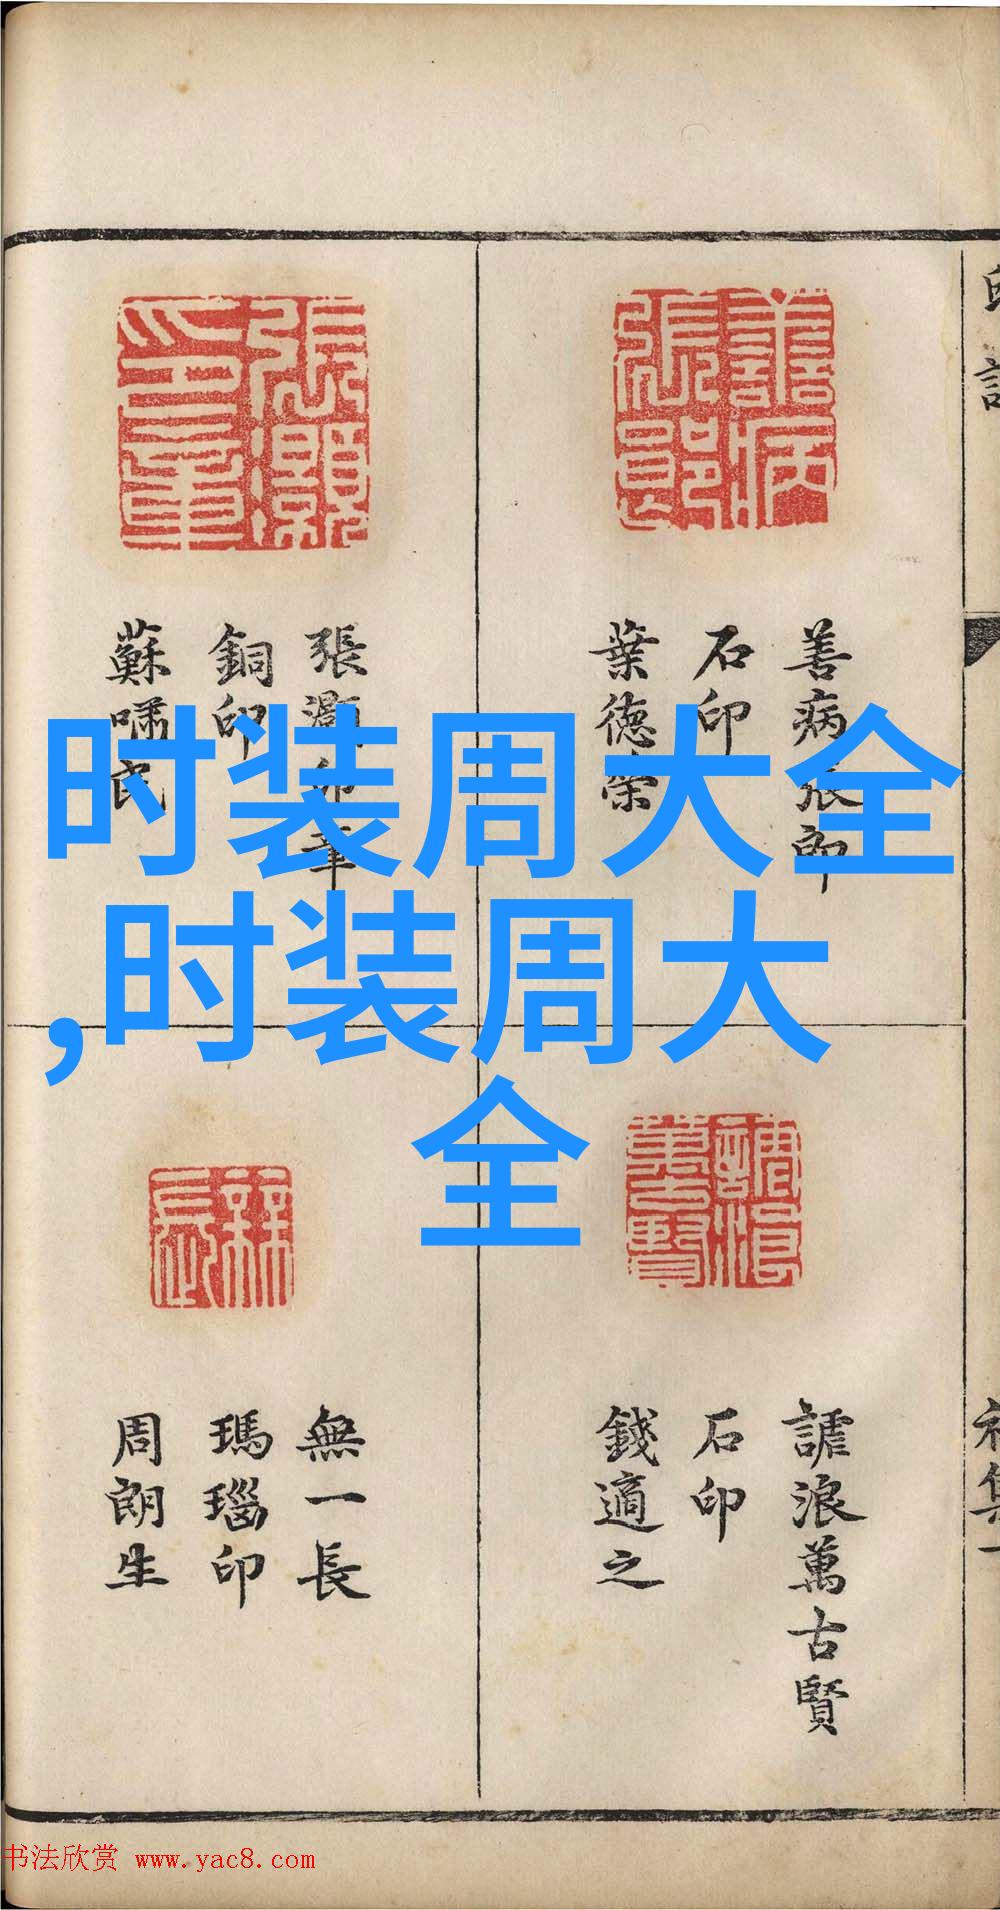 善病張郎
石印
葉德榮
張灝印章
銅印
蘇嘯民
時装周大全
,时装周大
全
謔浪萬古賢
石印
錢適之
無一長
瑪瑙印
周朗生
书法欣赏 www.yac8.com